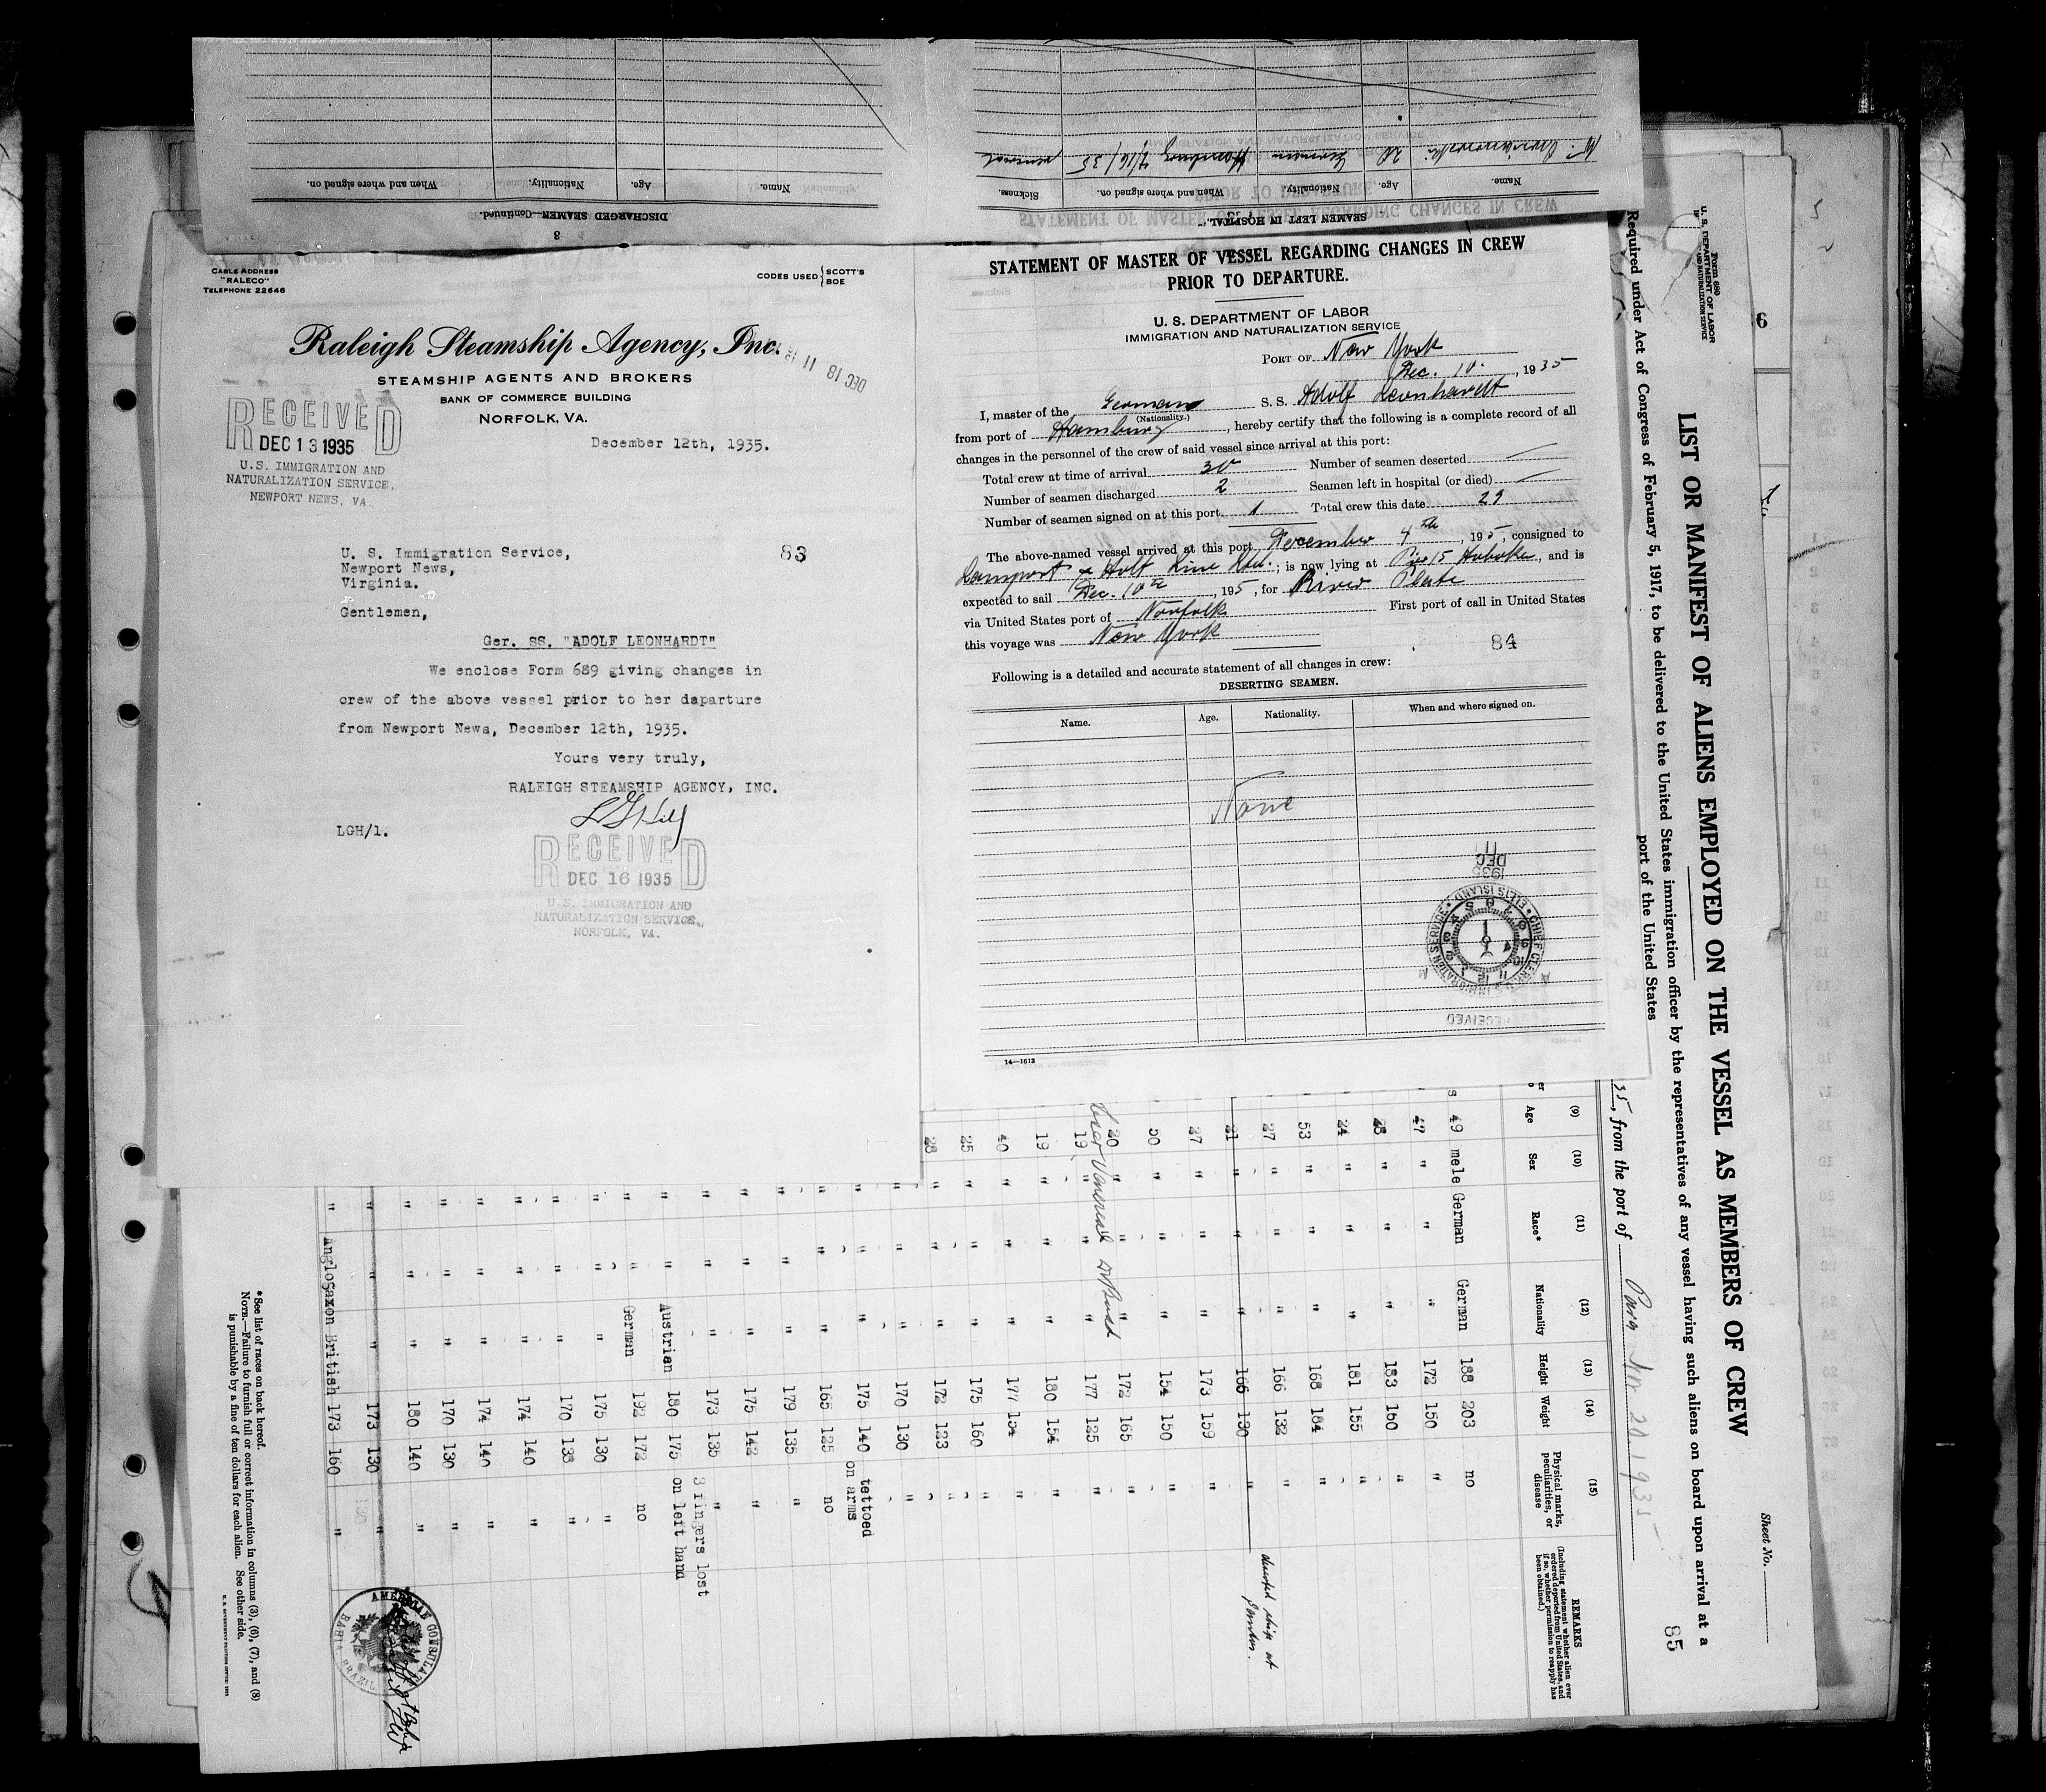 DISCHARGED SEAMEN—Continued.
3
Name.
Age.
Nationality.
When and where signed on.
SEAMEN LEFT IN HOSPITAL.
Name.
Age.
Nationality.
When and where signed on.
Sickness.
28 German Hamburg 7/16/35 venereal
CABLE ADDRESS
"RALECO"
TELEPHONE 22646
CODES USED SCOTT'S
BOE
Raleigh Steamship Agency, Inc.
STEAMSHIP AGENTS AND BROKERS
BANK OF COMMERCE BUILDING
NORFOLK, VA.
DEC 18 11
RECEIVED
DEC 13 1935
U.S. IMMIGRATION AND
NATURALIZATION SERVICE,
NEWPORT NEWS, VA.
December 12th, 1935.
U. S. Immigration Service,
Newport News,
Virginia.
83
Gentlemen,
Ger. SS. "ADOLF LEONHARDT"
We enclose Form 689 giving changes in
crew of the above vessel prior to her departure
from Newport News, December 12th, 1935.
Yours very truly,
RALEIGH STEAMSHIP AGENCY, INC.
LGHill
LGH/l.
RECEIVED
DEC 16 1935
U.S. IMMIGRATION AND
NATURALIZATION SERVICE,
NORFOLK, VA.
STATEMENT OF MASTER OF VESSEL REGARDING CHANGES IN CREW
PRIOR TO DEPARTURE.
U. S. DEPARTMENT OF LABOR
IMMIGRATION AND NATURALIZATION SERVICE
PORT OF New York
Dec. 10. , 1935
I, master of the German S. S. Adolf Leonhardt
(Nationality.)
from port of Hamburg , hereby certify that the following is a complete record of all
changes in the personnel of the crew of said vessel since arrival at this port:
Total crew at time of arrival 30 Number of seamen deserted —
Number of seamen discharged 2 Seamen left in hospital (or died) —
Number of seamen signed on at this port 1 Total crew this date 29
The above-named vessel arrived at this port December 4th , 1935, consigned to
Lamport & Holt Line Ltd. ; is now lying at Pier 15 Hoboken, and is
expected to sail Dec. 10th , 1935, for River Plate
via United States port of Norfolk First port of call in United States
this voyage was New York
84
Following is a detailed and accurate statement of all changes in crew:
DESERTING SEAMEN.
Name. Age. Nationality. When and where signed on.
None
1935
DEC 11
CHIEF CLERK U.S. IMMIGRATION SERVICE • ELLIS ISLAND
RECEIVED
14—1613
Form 680
U. S. DEPARTMENT OF LABOR
IMMIGRATION AND NATURALIZATION SERVICE
Sheet No.
85
LIST OR MANIFEST OF ALIENS EMPLOYED ON THE VESSEL AS MEMBERS OF CREW
Required under Act of Congress of February 5, 1917, to be delivered to the United States immigration officer by the representatives of any vessel having such aliens on board upon arrival at a
port of the United States
35, from the port of Para Nov 20 1935
(9) (10) (11) (12) (13) (14) (15)
Age Sex Race* Nationality Height Weight Physical marks, peculiarities, or disease
REMARKS
(Including statement whether alien ever ordered deported from United States, and if so, whether permission to reapply has been obtained.)
49 mele German German 188 203 no
47 " " " 172 150 "
28 " " " 183 160 "
24 " " " 181 155 "
53 " " " 168 184 "
27 " " " 166 132 "
21 " " " 166 130 " deserted ship at Santos.
27 " " " 173 159 "
50 " " " 154 150 "
20 " " " 172 165 "
19 " " " 177 125 "
19 " " " 180 154 "
40 " " " 177 154 "
25 " " " 175 160 "
28 " " " 172 123 "
" " " 170 130 "
" " " 175 140 tattoed on arms
" " " 165 125 no
" " " 179 135 "
" " " 175 142 "
" " " 173 135 "
" " Austrian 180 175 3 fingers lost on left hand
" " German 192 172 no
" " " 175 130 "
" " " 170 133 "
" " " 174 140 "
" " " 174 140 "
" " " 170 130 "
" " " 180 140 "
" " " 173 130 "
" AngloSaxon British 173 160 "
AMERICAN CONSULATE
BAHIA BRAZIL
* See list of races on back hereof.
NOTE.—Failure to furnish full or correct information in columns (3), (6), (7), and (8)
is punishable by a fine of ten dollars for each alien. See other side.